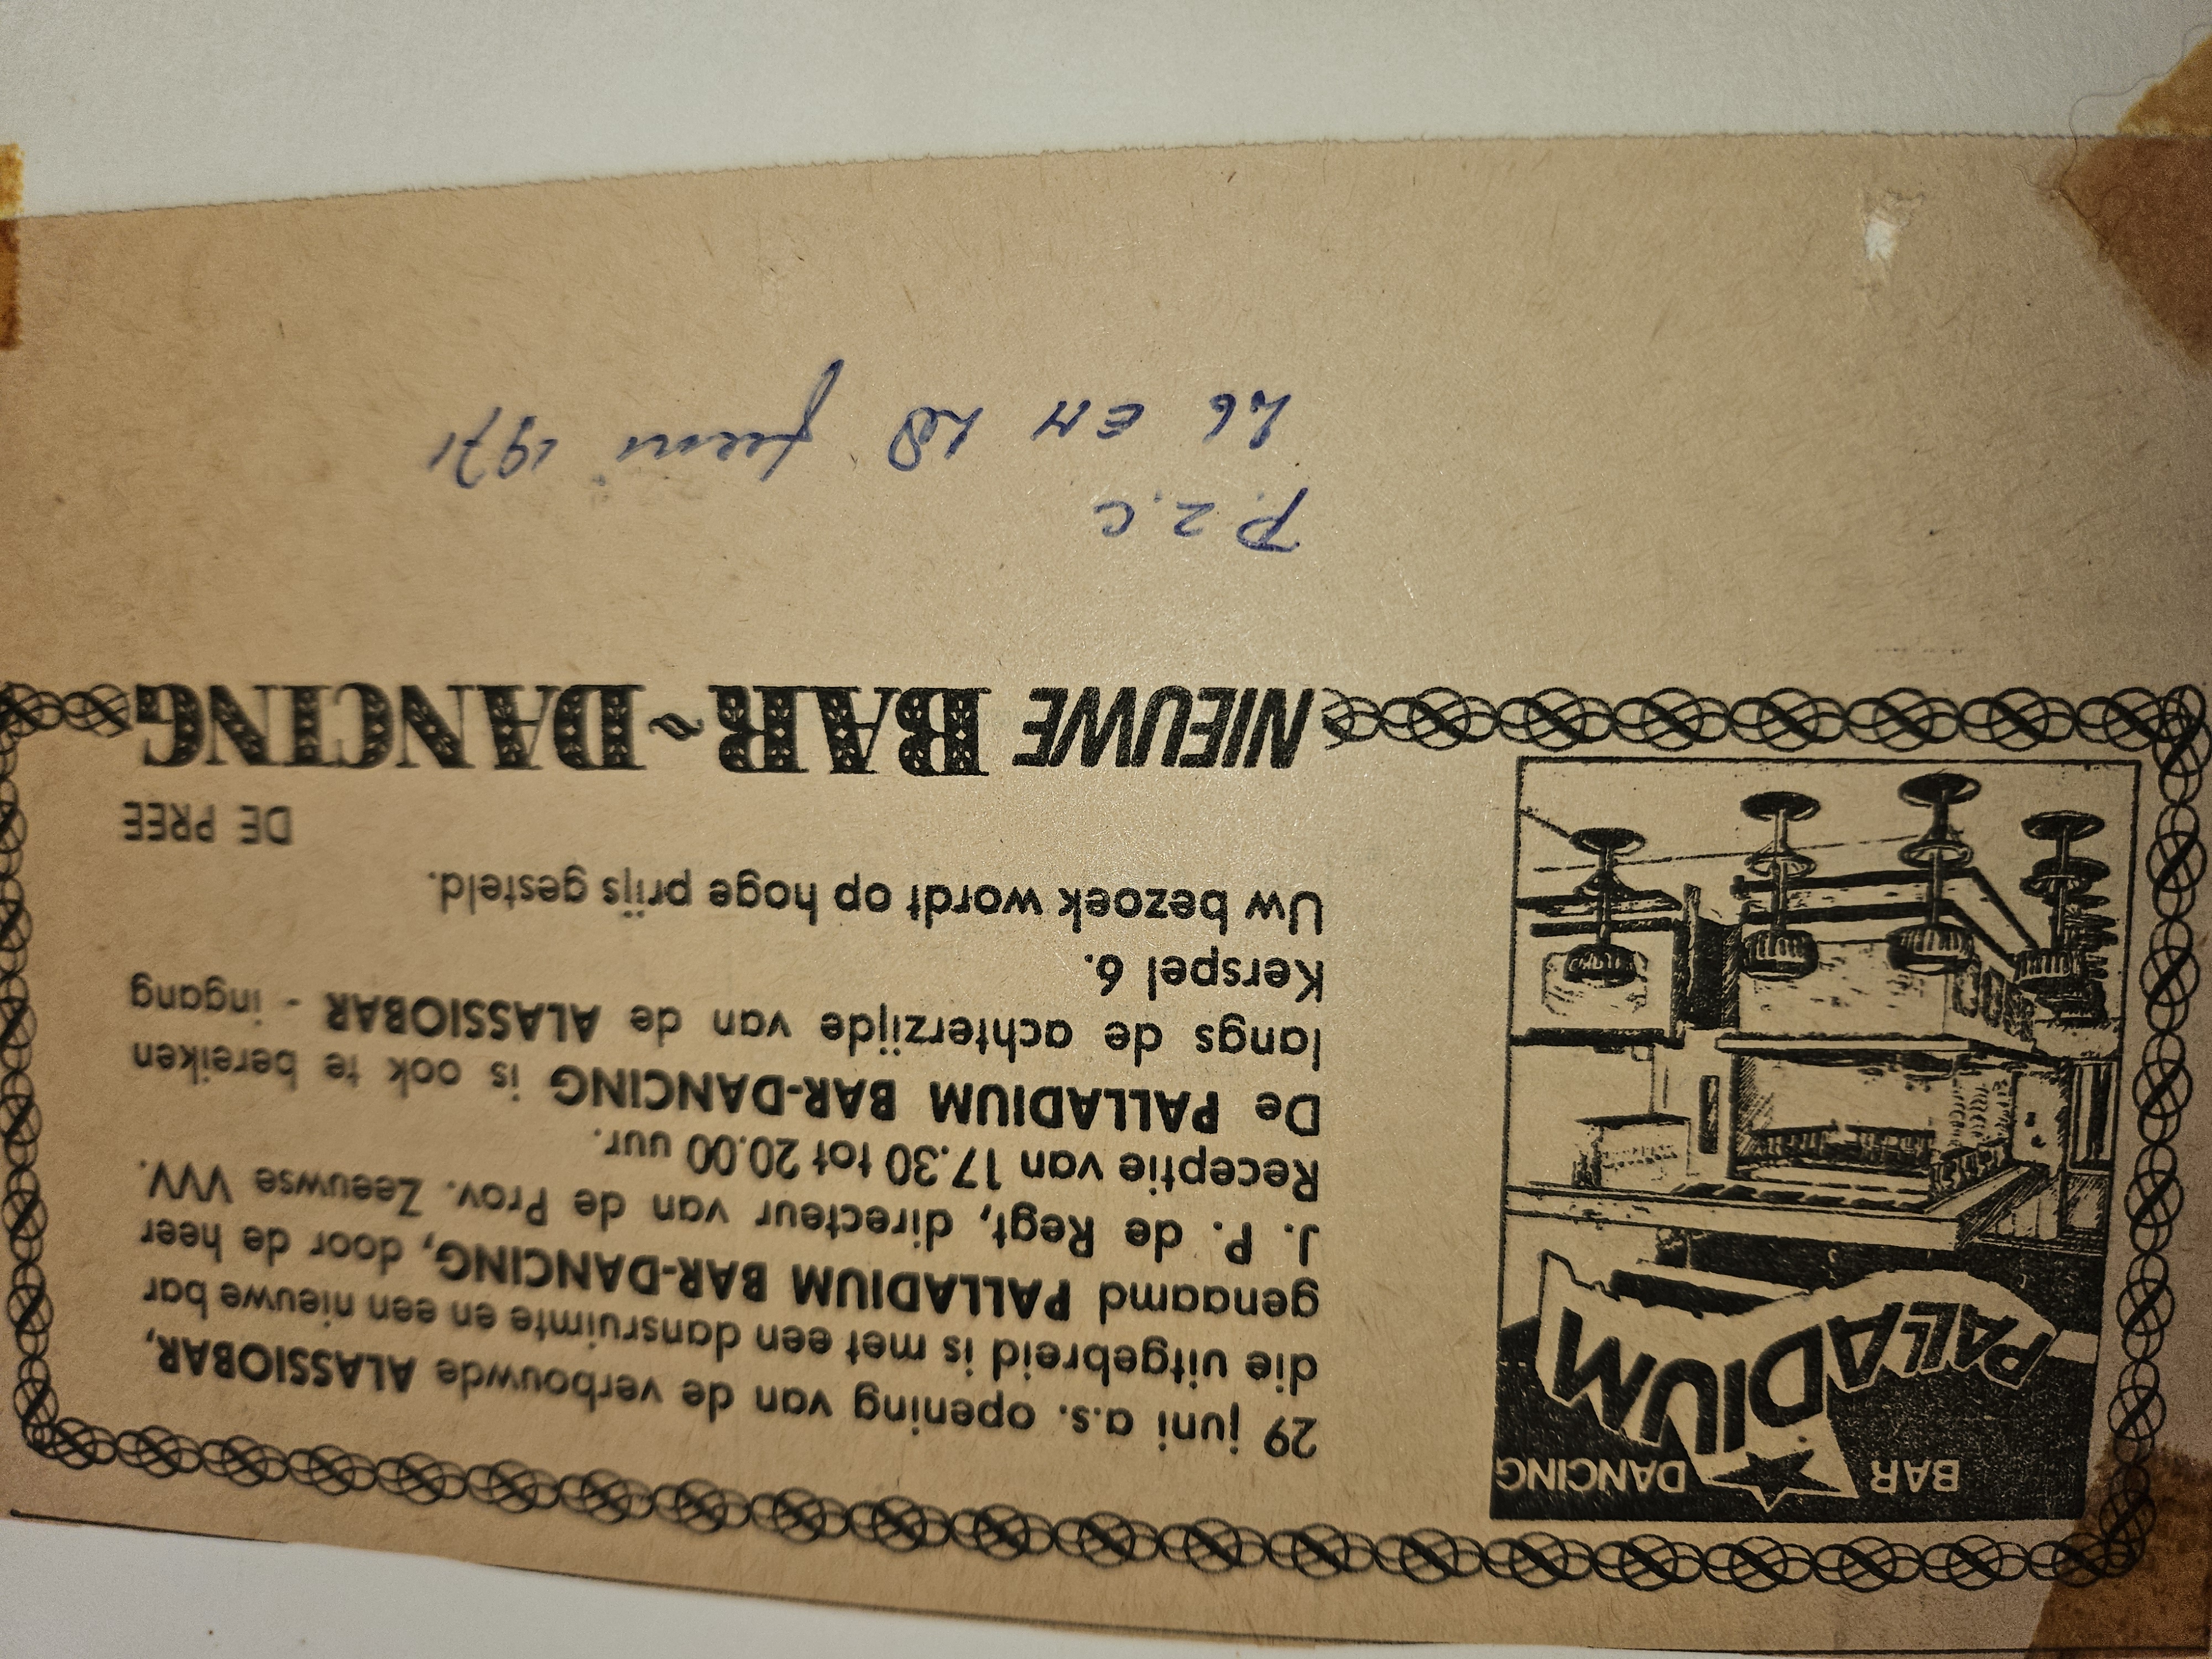 P.Z.C
26 EN 28 juni 1971
NIEUWE BAR ~ DANCING
DE PREE
Uw bezoek wordt op hoge prijs gesteld.
Kerspel 6.
langs de achterzijde van de ALASSIOBAR - ingang
De PALLADIUM BAR-DANCING is ook te bereiken
Receptie van 17.30 tot 20.00 uur.
J. P. de Regt, directeur van de Prov. Zeeuwse VVV.
genaamd PALLADIUM BAR-DANCING, door de heer
die uitgebreid is met een dansruimte en een nieuwe bar
29 juni a.s. opening van de verbouwde ALASSIOBAR,
PALLADIUM
BAR DANCING